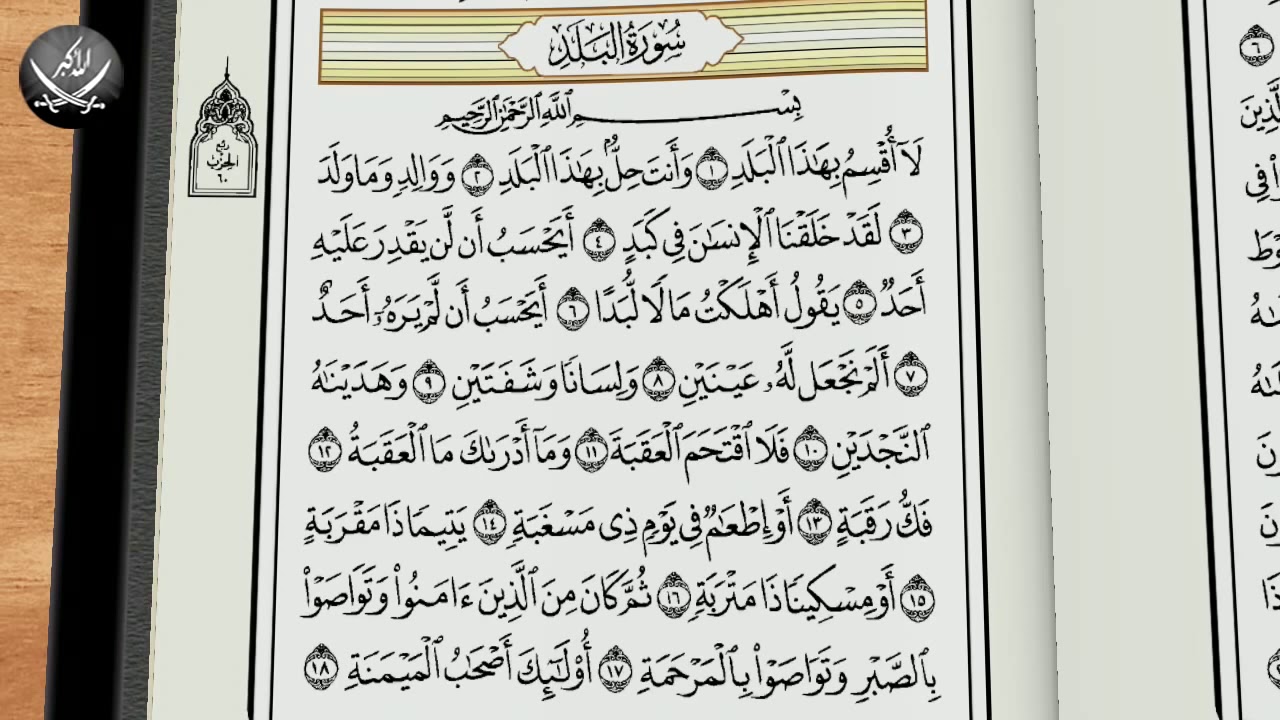 الله أكبر
سُورَةُ البَلَدِ
بِسْمِ ٱللَّهِ ٱلرَّحْمَٰنِ ٱلرَّحِيمِ
لَآ أُقْسِمُ بِهَٰذَا ٱلْبَلَدِ ١ وَأَنتَ حِلٌّۢ بِهَٰذَا ٱلْبَلَدِ ٢ وَوَالِدٍ وَمَا وَلَدَ
٣ لَقَدْ خَلَقْنَا ٱلْإِنسَٰنَ فِى كَبَدٍ ٤ أَيَحْسَبُ أَن لَّن يَقْدِرَ عَلَيْهِ
أَحَدٌ ٥ يَقُولُ أَهْلَكْتُ مَالًا لُّبَدًا ٦ أَيَحْسَبُ أَن لَّمْ يَرَهُۥٓ أَحَدٌ
٧ أَلَمْ نَجْعَل لَّهُۥ عَيْنَيْنِ ٨ وَلِسَانًا وَشَفَتَيْنِ ٩ وَهَدَيْنَٰهُ
ٱلنَّجْدَيْنِ ١٠ فَلَا ٱقْتَحَمَ ٱلْعَقَبَةَ ١١ وَمَآ أَدْرَىٰكَ مَا ٱلْعَقَبَةُ ١٢
فَكُّ رَقَبَةٍ ١٣ أَوْ إِطْعَٰمٌ فِى يَوْمٍ ذِى مَسْغَبَةٍ ١٤ يَتِيمًا ذَا مَقْرَبَةٍ
١٥ أَوْ مِسْكِينًا ذَا مَتْرَبَةٍ ١٦ ثُمَّ كَانَ مِنَ ٱلَّذِينَ ءَامَنُوا۟ وَتَوَاصَوْا۟
بِٱلصَّبْرِ وَتَوَاصَوْا۟ بِٱلْمَرْحَمَةِ ١٧ أُو۟لَٰٓئِكَ أَصْحَٰبُ ٱلْمَيْمَنَةِ ١٨
ربع
الحزب
٦٠